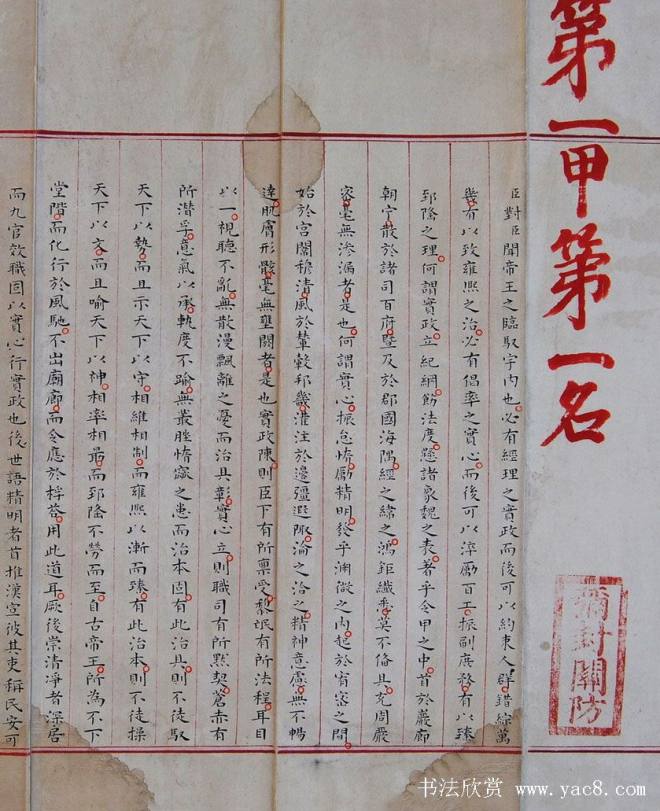 第一甲第一名
彌封關防
臣對臣聞帝王之臨馭宇內也必有經理之實政而後可以約束人群錯綜萬
幾有以致雍熙之治必有倡率之實心而後可以淬勵百工振刷庶務有以臻
郅隆之理何謂實政立紀綱飭法度懸諸象魏之表著乎令甲之中首於巖廊
朝宁散於諸司百府暨及於郡國海隅經之緯之鴻鉅纖悉莫不備具充周嚴
密毫無滲漏者是也何謂實心振怠惰勵精明發乎淵微之內起於宥密之間
始於宮闈穆清風於輦轂邦畿灌注於邊疆遐陬淪之洽之精神意慮無不暢
達肌膚形骸毫無壅閼者是也實政陳則臣下有所稟受黎氓有所法程耳目
以一視聽不亂無散漫飄離之憂而治具彰實心立則職司有所默契蒼赤有
所潛孚意氣以承軌度不踰無叢脞惰窳之患而治本固有此治具則不徒馭
天下以勢而且示天下以守相維相制而雍熙以漸而臻有此治本則不徒操
天下以文而且喻天下以神相率相最而郅隆不勞而至自古帝王所為不下
堂階而化行於風馳不出廟廊而令應於桴答用此道耳厥後崇清淨者深居
而九官效職固以實心行實政也後世語精明者首推漢宣彼其吏稱民安可
书法欣赏 www.yac8.com